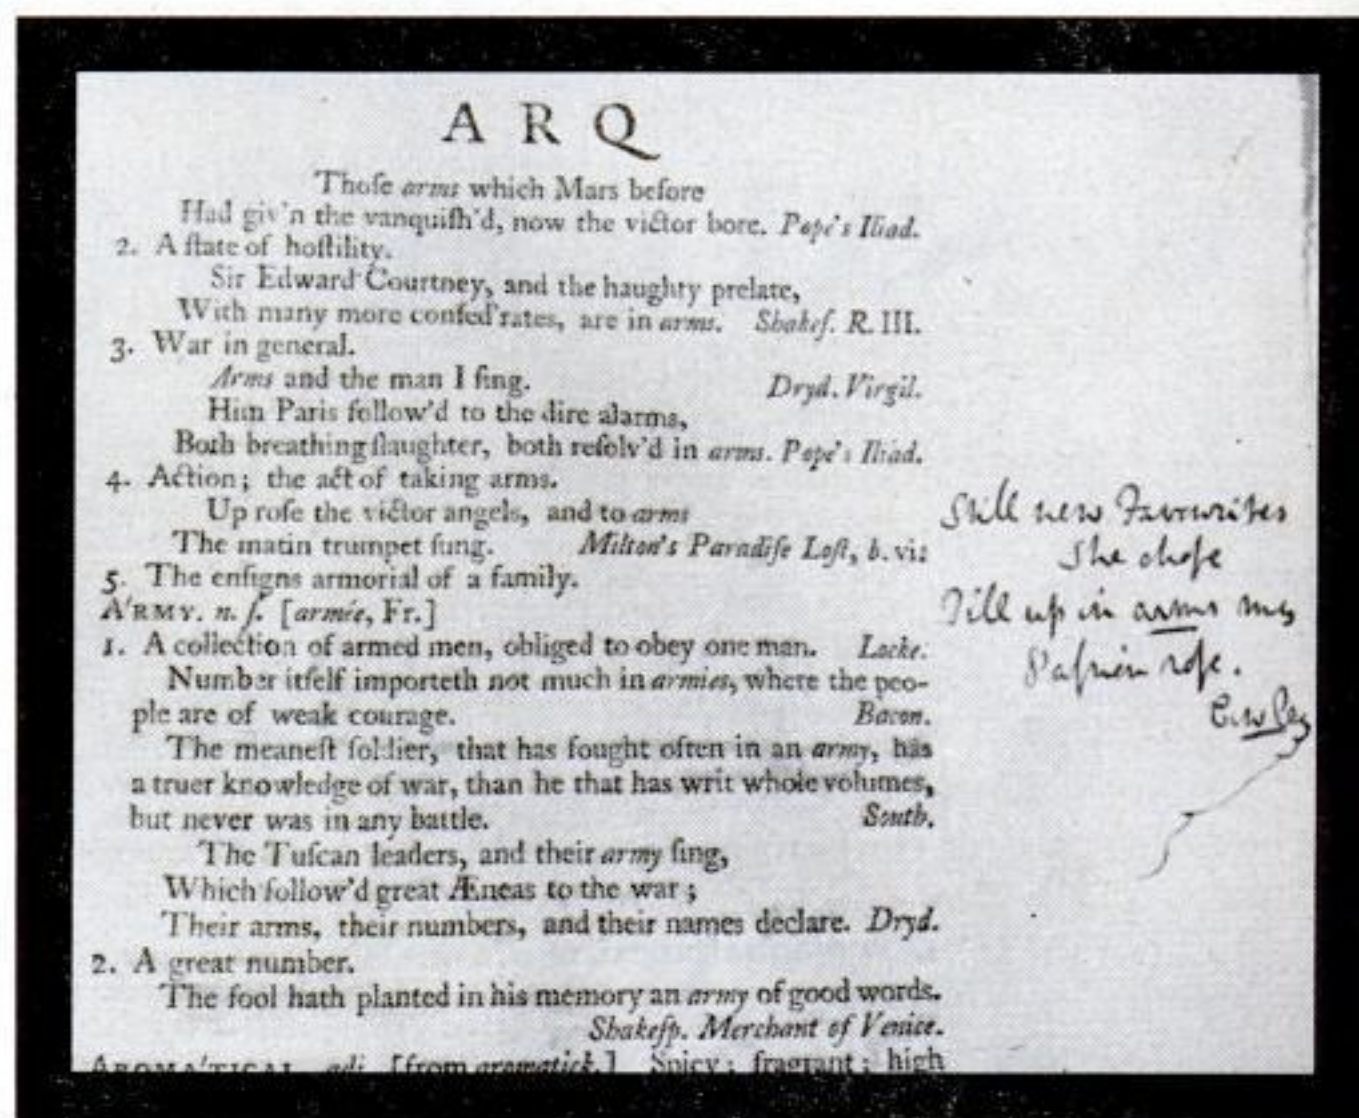 A R Q
Thoſe arms which Mars before
Had giv'n the vanquiſh'd, now the victor bore. Pope's Iliad.
2. A ſtate of hoſtility.
Sir Edward Courtney, and the haughty prelate,
With many more confed'rates, are in arms. Shakeſ. R. III.
3. War in general.
Arms and the man I ſing. Dryd. Virgil.
Him Paris follow'd to the dire alarms,
Both breathing ſlaughter, both reſolv'd in arms. Pope's Iliad.
4. Action; the act of taking arms.
Up roſe the victor angels, and to arms
The matin trumpet ſung. Milton's Paradiſe Loſt, b. vi:
5. The enſigns armorial of a family.
A'RMY. n. ſ. [armée, Fr.]
1. A collection of armed men, obliged to obey one man. Locke.
Number itſelf importeth not much in armies, where the peo-
ple are of weak courage. Bacon.
The meaneſt ſoldier, that has fought often in an army, has
a truer knowledge of war, than he that has writ whole volumes,
but never was in any battle. South.
The Tuſcan leaders, and their army ſing,
Which follow'd great Æneas to the war;
Their arms, their numbers, and their names declare. Dryd.
2. A great number.
The fool hath planted in his memory an army of good words.
Shakeſp. Merchant of Venice.
AROMA'TICAL. adj. [from aromatick.] Spicy; fragrant; high
Still new Favourites
She choſe
Till up in arms my
Paſsion roſe.
Cowley